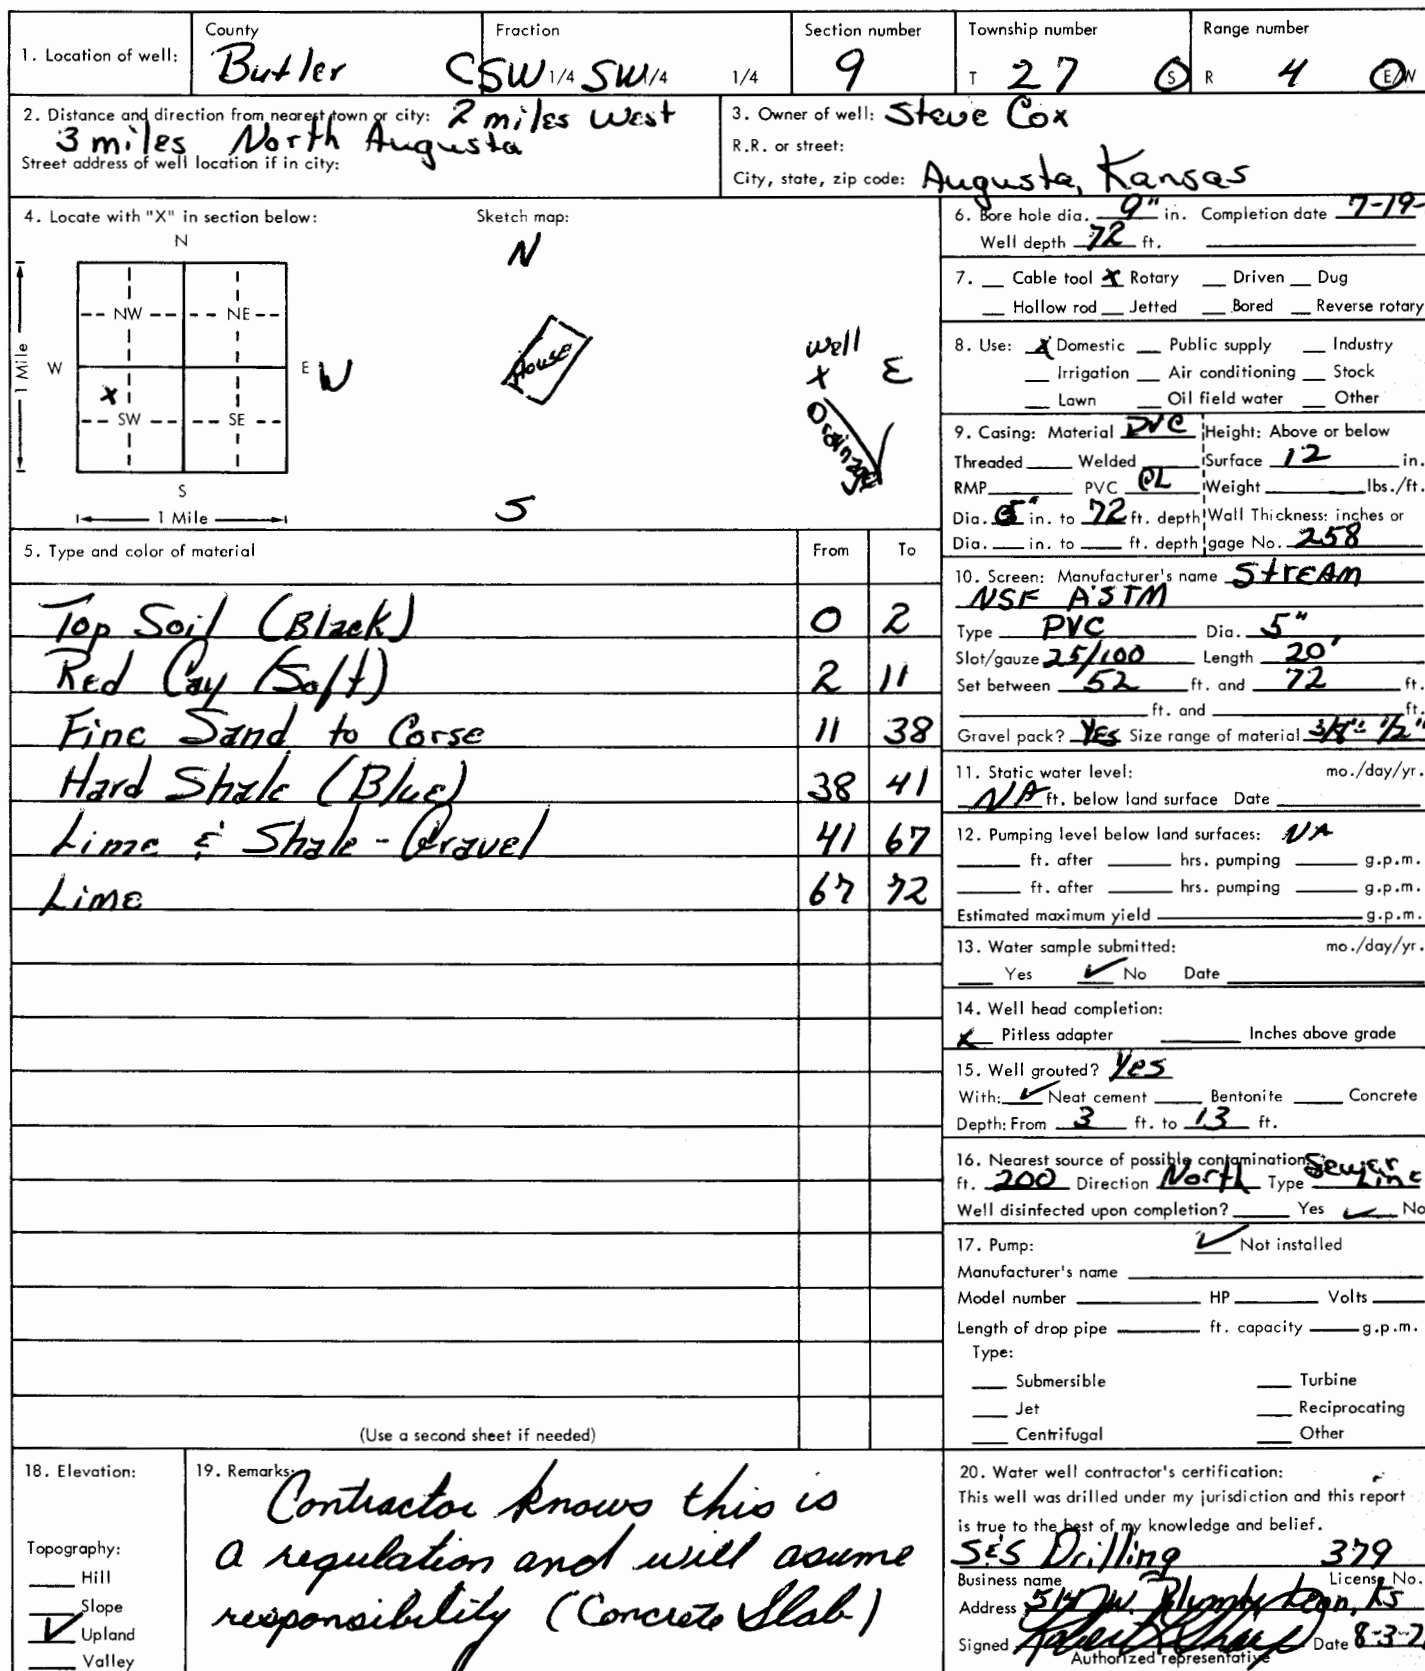 1. Location of well: County Butler Fraction CSW 1/4 SW 1/4 1/4 Section number 9 Township number T 27 S Range number R 4 E/W
2. Distance and direction from nearest town or city: 2 miles west
3 miles North Augusta
Street address of well location if in city:
3. Owner of well: Steve Cox
R.R. or street:
City, state, zip code: Augusta, Kansas
4. Locate with "X" in section below:
N
NW NE
W E
X
SW SE
S
1 Mile
1 Mile
Sketch map:
N
House
W
well
X
E
Drainage
S
5. Type and color of material From To
Top Soil (Black) 0 2
Red Cay (Soft) 2 11
Fine Sand to Corse 11 38
Hard Shale (Blue) 38 41
Lime & Shale - Gravel 41 67
Lime 67 72
(Use a second sheet if needed)
6. Bore hole dia. 9" in. Completion date 7-19-
Well depth 72 ft.
7. Cable tool X Rotary Driven Dug
Hollow rod Jetted Bored Reverse rotary
8. Use: X Domestic Public supply Industry
Irrigation Air conditioning Stock
Lawn Oil field water Other
9. Casing: Material PVC Height: Above or below
Threaded Welded Surface 12 in.
RMP PVC Weight lbs./ft.
Dia. 5" in. to 72 ft. depth Wall Thickness: inches or
Dia. in. to ft. depth gage No. 258
10. Screen: Manufacturer's name STREAM
NSF ASTM
Type PVC Dia. 5"
Slot/gauze 25/100 Length 20'
Set between 52 ft. and 72 ft.
ft. and ft.
Gravel pack? YES Size range of material 3/8" 1/2"
11. Static water level: mo./day/yr.
NA ft. below land surface Date
12. Pumping level below land surfaces: NA
ft. after hrs. pumping g.p.m.
ft. after hrs. pumping g.p.m.
Estimated maximum yield g.p.m.
13. Water sample submitted: mo./day/yr.
Yes ✓ No Date
14. Well head completion:
X Pitless adapter Inches above grade
15. Well grouted? Yes
With: ✓ Neat cement Bentonite Concrete
Depth: From 3 ft. to 13 ft.
16. Nearest source of possible contamination: Sewer
ft. 200 Direction North Type Line
Well disinfected upon completion? Yes ✓ No
17. Pump: ✓ Not installed
Manufacturer's name
Model number HP Volts
Length of drop pipe ft. capacity g.p.m.
Type:
Submersible Turbine
Jet Reciprocating
Centrifugal Other
18. Elevation:
Topography:
Hill
Slope
✓ Upland
Valley
19. Remarks:
Contractor knows this is
a regulation and will asume
responsibility (Concrete Slab)
20. Water well contractor's certification:
This well was drilled under my jurisdiction and this report
is true to the best of my knowledge and belief.
S&S Drilling 379
Business name License No.
Address W. Ks
Signed Robert Sharp Date 8-3-7
Authorized representative